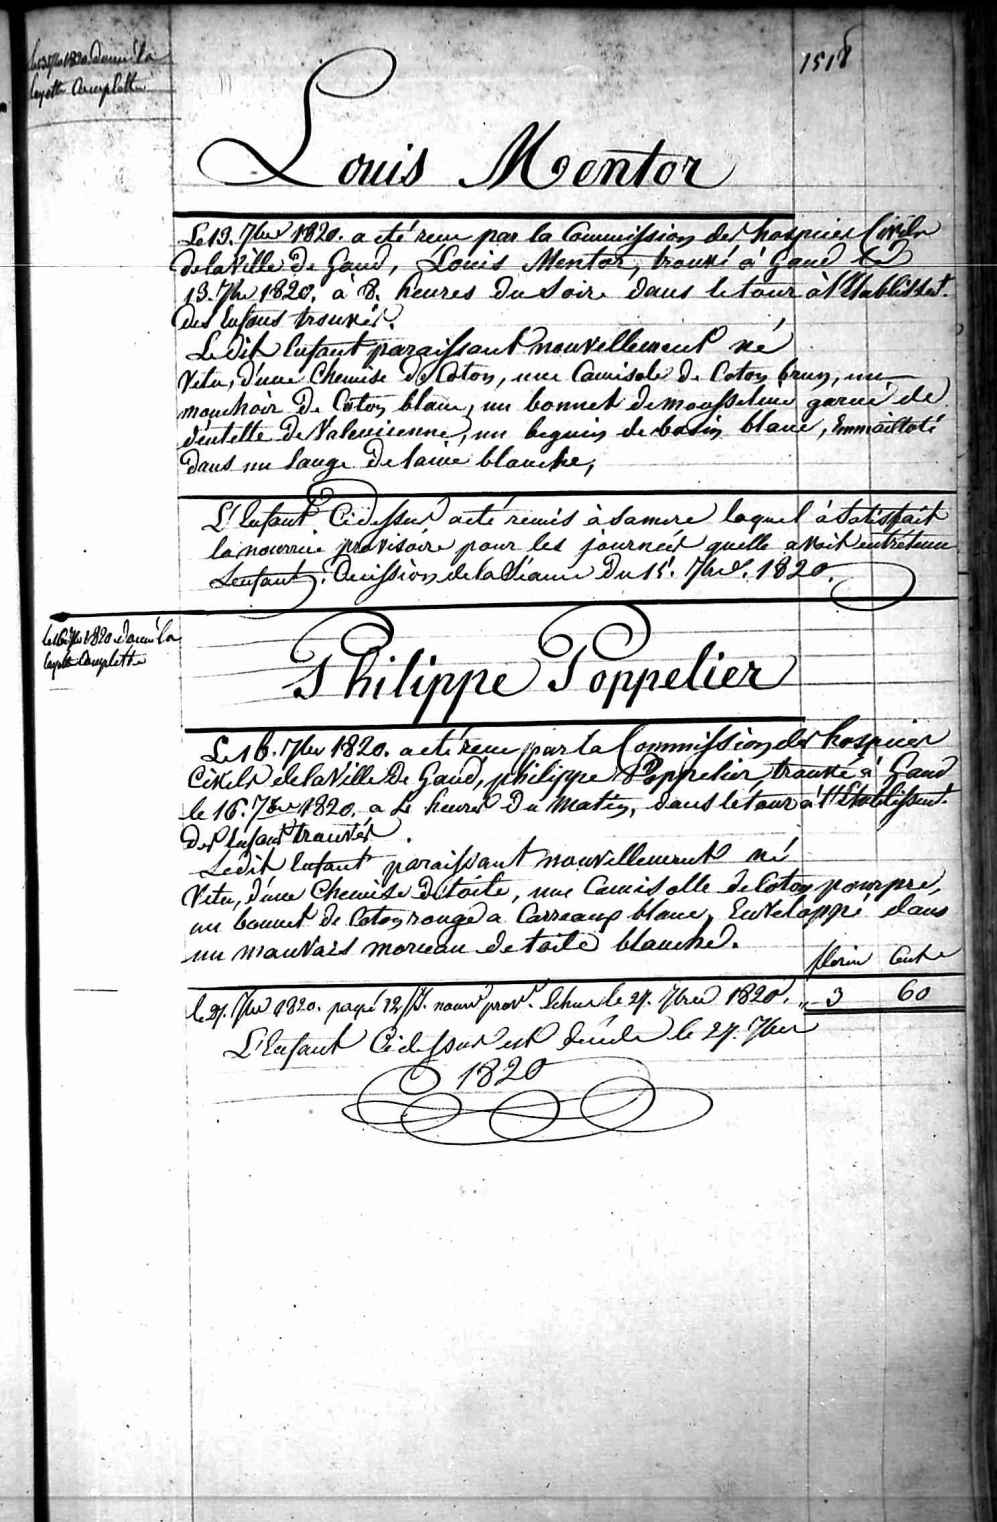 1518
le 13 7br 1820 donné la
layette Complette
Louis Mentor
Le 13. 7ber 1820. a eté recu par la Commission des hospices Civils
de la Ville de Gand, Louis Mentor, trouvé à Gand le
13. 7br 1820. à 8. heures du Soire dans le tour à l'Etablisst.
des Enfans trouvés.
Le dit Enfant paraissant nouvellement né
Vetu, d'une Chemise de Coton, une Camisole de Coton brun, un
mouchoir de Coton blanc, un bonnet de mousseline garni de
dentelle de Valencienne, un beguin de basin blanc, Emmailloté
dans un lange de laine blanche,
L'Enfant Cidessus a eté remis à sa mere laquel à Satisfait
la nourrice provisoire pour les journéés quelle avoit entretenu
L'enfant. Decission de la Séance du 15. 7bre. 1820.
le 16 7br 1820 donné la
layette Complette
Philippe Poppelier
Le 16. 7ber 1820. a eté recu par la Commission des hospices
Civils de la Ville de Gand, philippe Poppelier, trouvé à Gand
le 16. 7bre 1820. a heures du Matin, dans le tour à l'Etablissemt.
des Enfans trouvés.
Le dit Enfant paraissant nouvellement né
Vetu, d'une Chemise de toile, une Camisolle de Coton pourpre,
un bonnet de Coton rouge a Carreaux blanc, Envelappé dans
un mauvais morceau de toile blanche.
florin Cents
le 27. 7bre 1820. payé 12 nourr. prov. Echus le 27. 7bre 1820. 3 60
L'Enfant Cidessus est décédé le 27. 7ber
1820